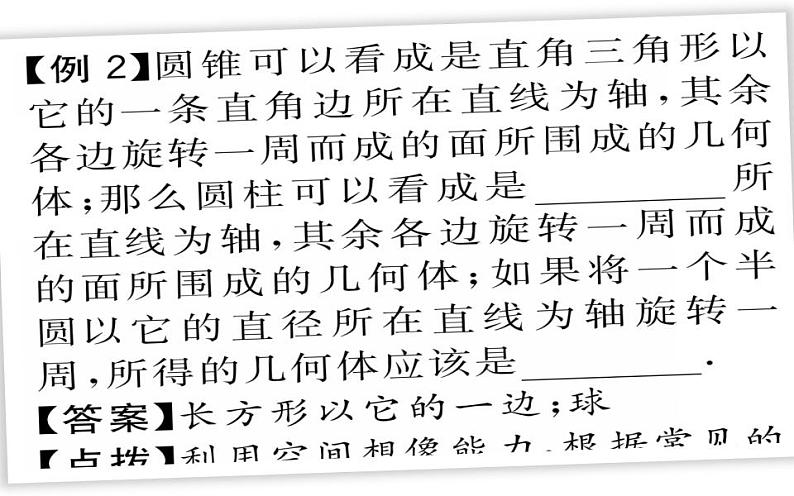 【例 2】圆锥可以看成是直角三角形以
它的一条直角边所在直线为轴,其余
各边旋转一周而成的面所围成的几何
体;那么圆柱可以看成是__________所
在直线为轴,其余各边旋转一周而成
的面所围成的几何体;如果将一个半
圆以它的直径所在直线为轴旋转一
周,所得的几何体应该是__________.
【答案】长方形以它的一边;球
【点拨】利用空间想像能力,根据常见的